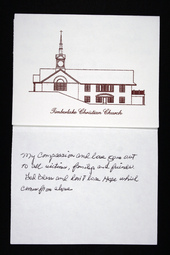 Timberlake Christian Church
My Compassion and love goes out
to all victims, family's and friends.
God Bless and don't lose Hope which
comes from above.